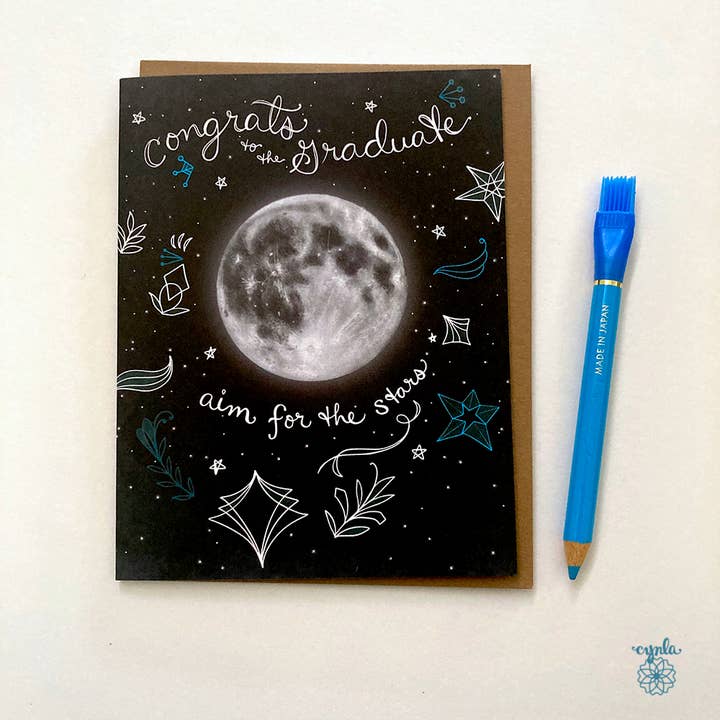 congrats
to the graduate
aim for the stars
MADE IN JAPAN
cynla